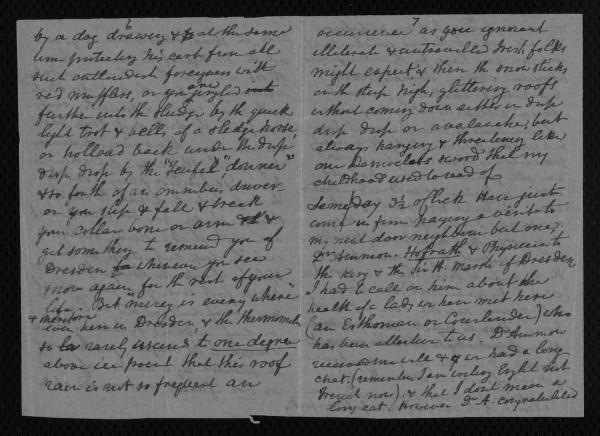 6
by a dog drawing & at the same
time protecting his cart from all
such outlandish foreigners with
red mufflers, or you are jingled
further into the sledge by the quick
light trot & bells of a sledge horse,
or holload back under the drip
drip drop by the "Teufel" "donner"
& so forth of an omnibus driver
or you slip & fall & break
your collar bone or arm & &
get something to remind you of
Dresden whenever you see
snow again for the rest of your
life. But "mercy is everywhere"
& therefore
even here in Dresden & the thermometer
so rarely ascends to one degree
above ice point that this roof
rain is not so frequent an
7
occurrence as you ignorant
illiterate & untravelled Irish folks
might expect & then the snow sticks
on the steep high, glittering roofs
without coming down either in drip
drip drip or avalanche, but
always hanging & threatening like
one Damocles's sword that my
childhood used to read of
Same day 3½ o'clock Have just
come in from paying a visit to
my next door neighbour but one,
Dr Ammon. Hofrath & Physician to
the King & the Sir H. Marsh of Dresden
I had to call on him about the
health of a lady we have met here
(an Esthonian or Courlander) who
has been attentive to us. Dr Ammon
received me well & we had a long
chat. (remember I am writing English not
French now) & that I dont mean a
long cat. However Dr A. congratulated